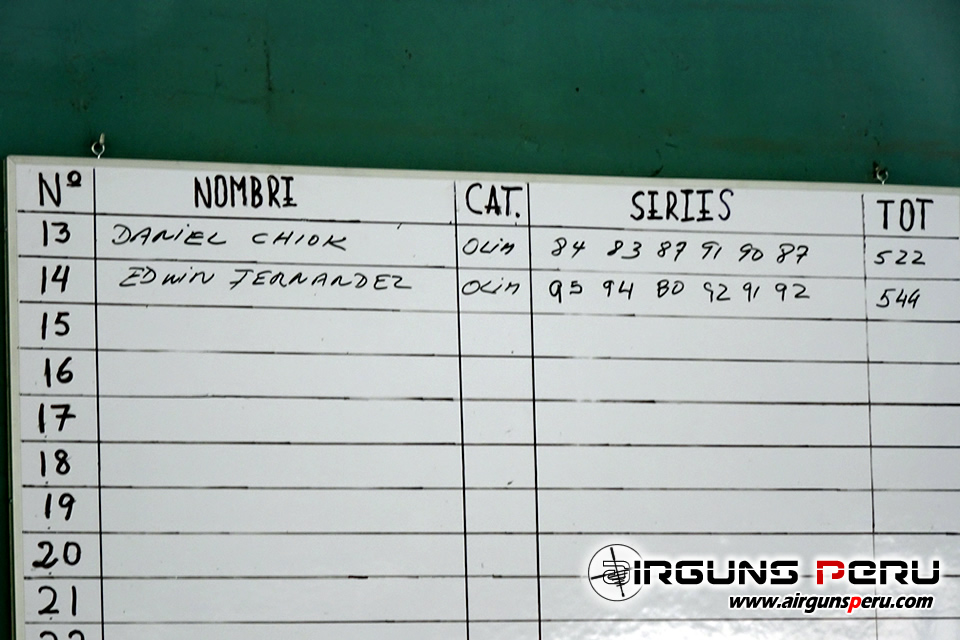 Nº NOMBRE CAT. SERIES TOT
13 DANIEL CHIOK OLIM 84 83 87 91 90 87 522
14 EDWIN FERNANDEZ OLIM 95 94 80 92 91 92 544
15
16
17
18
19
20
21
22
AIRGUNS PERU
www.airgunsperu.com